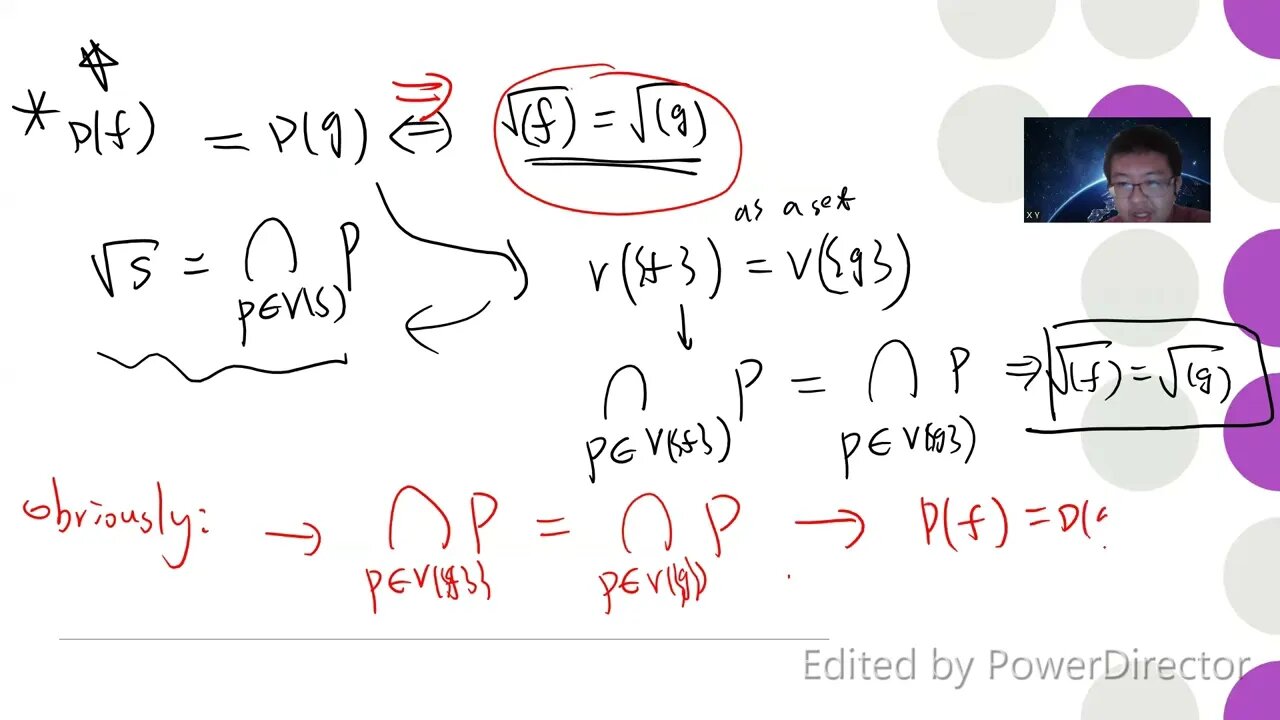 * D(f) = D(g) ⇔ √(f) = √(g)
⇒
as a set
√S = ∩ P
P∈V(S)
V({f}) = V({g})
↓
∩ P = ∩ P ⇒ √(f) = √(g)
P∈V({f}) P∈V({g})
obviously: → ∩ P = ∩ P → D(f) = D(
P∈V({f}) P∈V({g})
X Y
Edited by PowerDirector